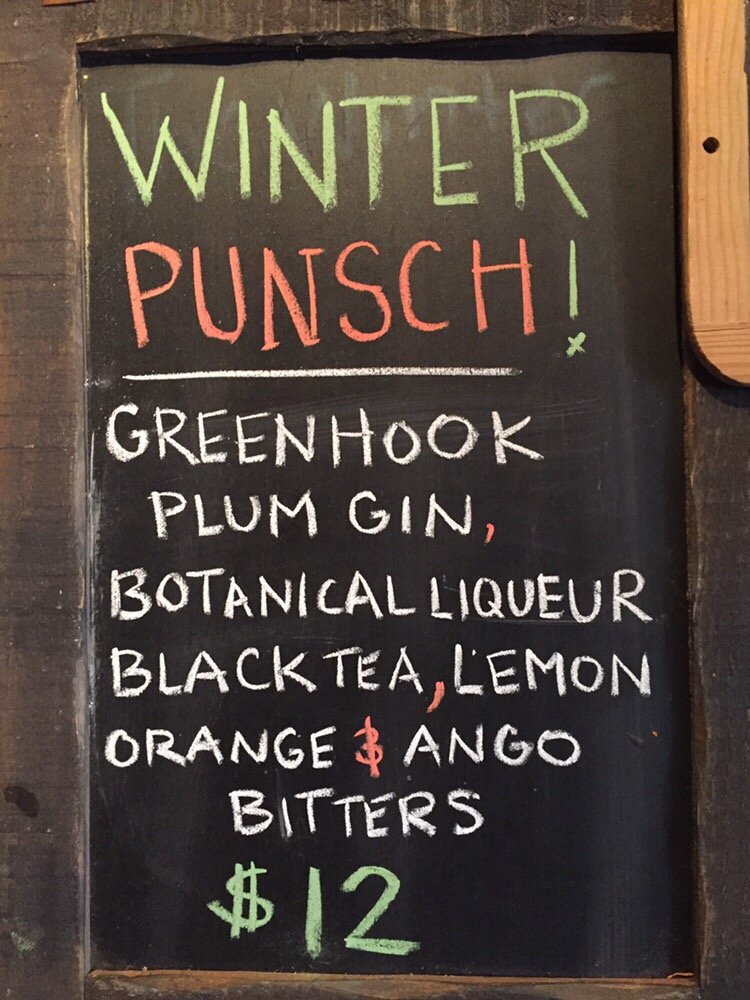 WINTER
PUNSCH!
GREENHOOK
PLUM GIN,
BOTANICAL LIQUEUR
BLACK TEA, LEMON
ORANGE & ANGO
BITTERS
$12